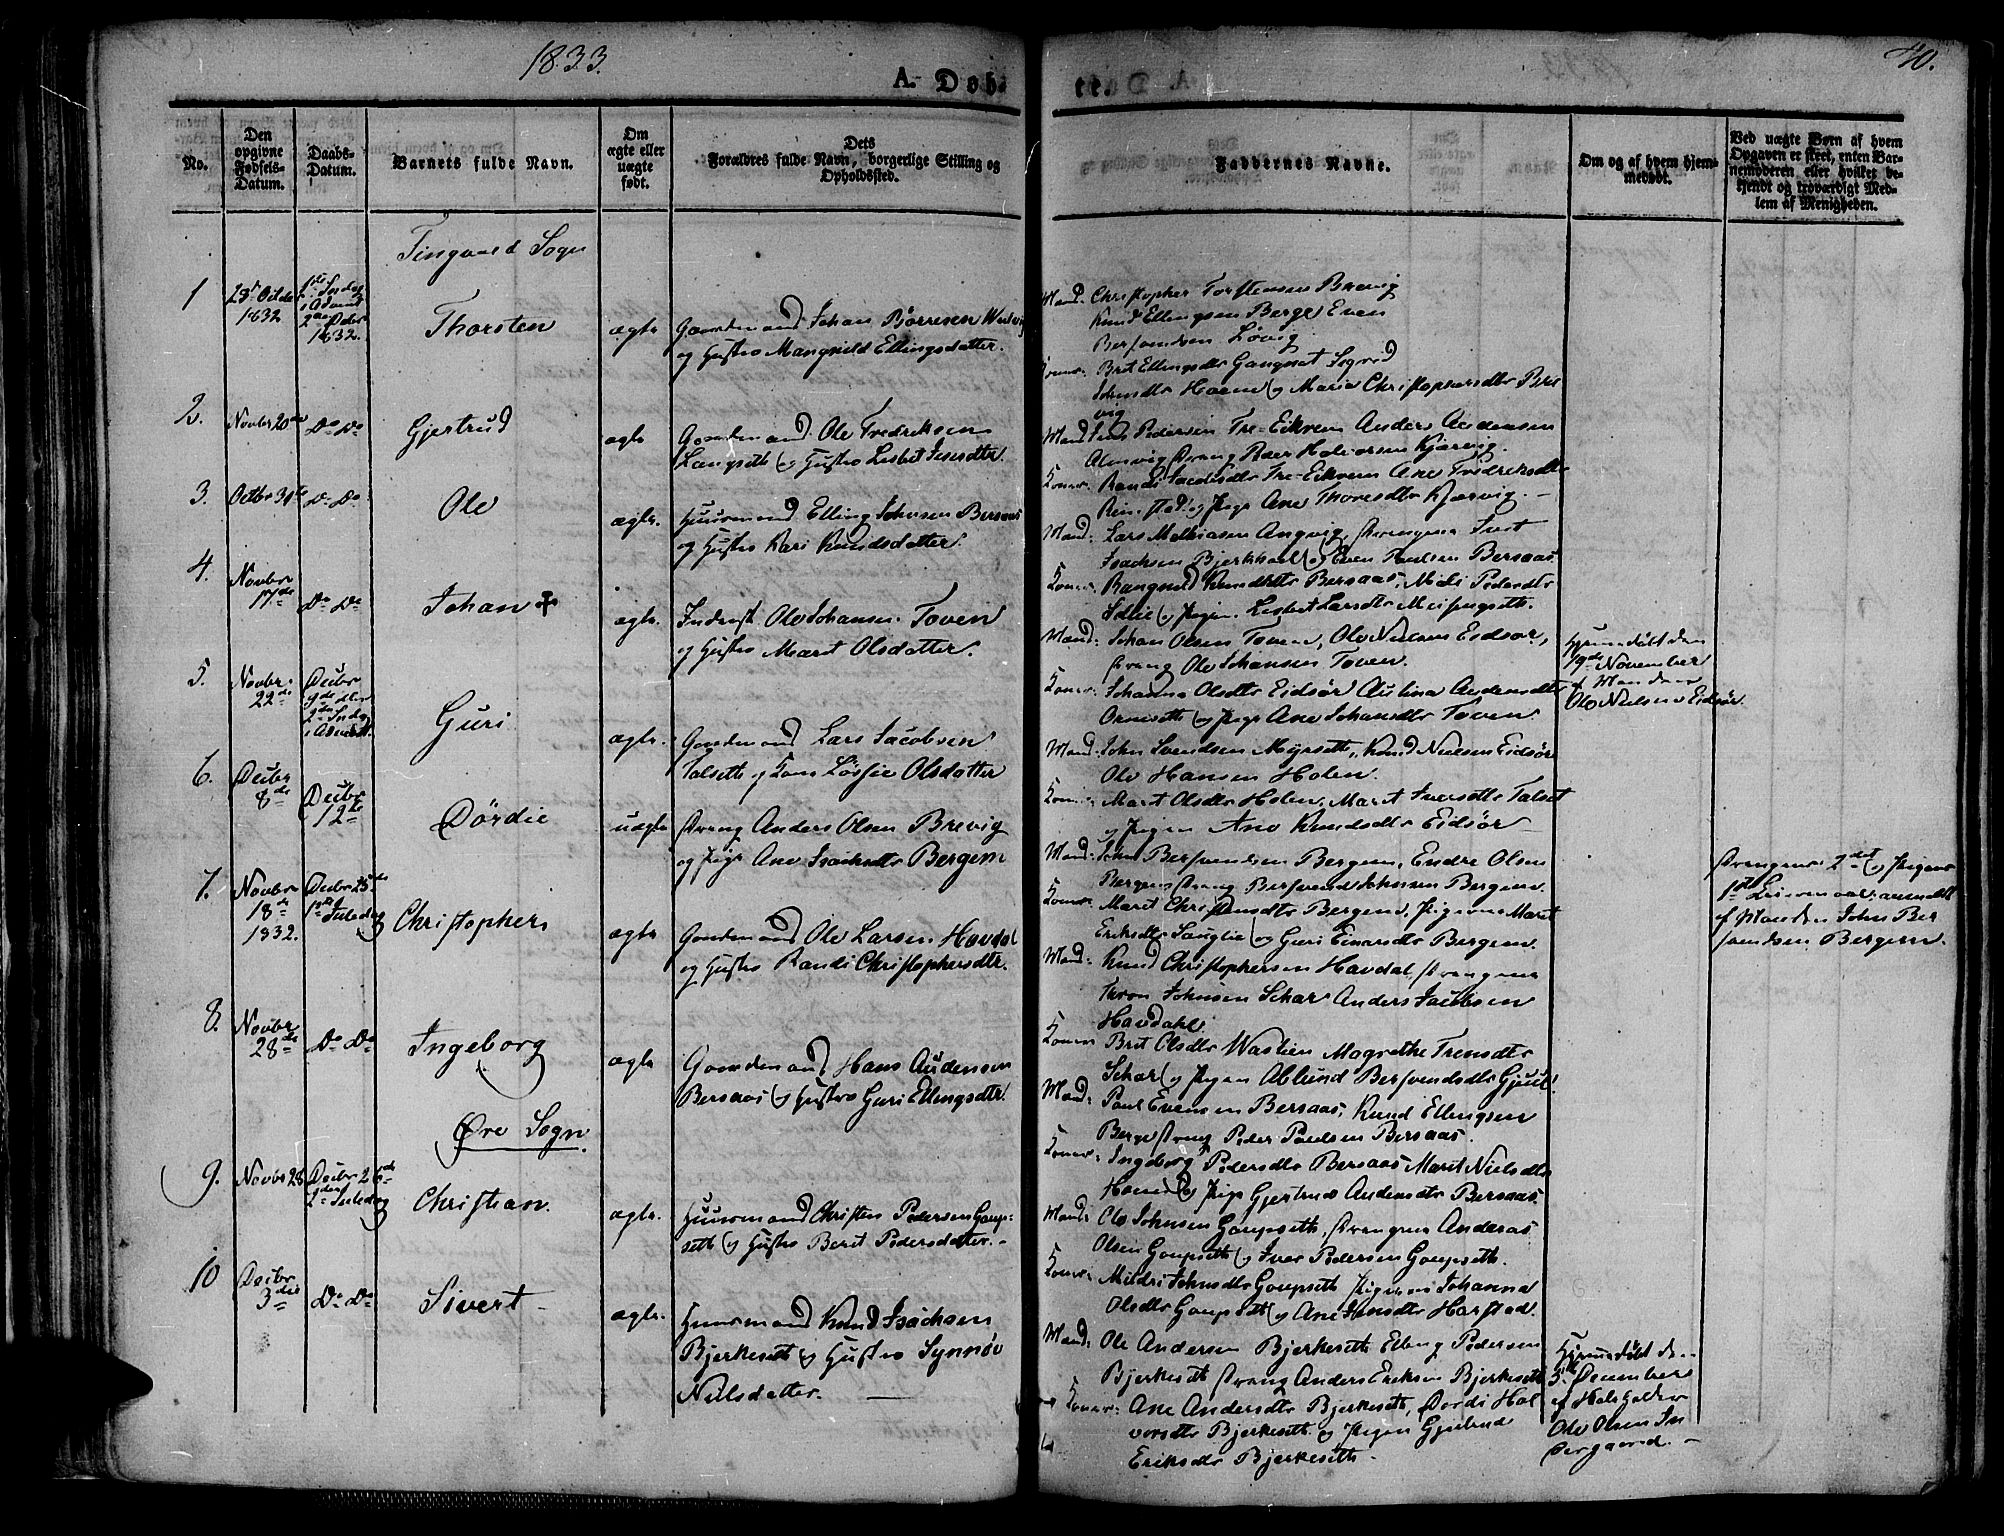 1833.
40.
A. Døb-
te.
No.
Den opgivne Fødsels-Datum.
Daabs-Datum.
Barnets fulde Navn.
Om ægte eller uægte født.
Dets Forældres fulde Navn, borgerlige Stilling og Opholdssted.
Faddernes Navne.
Om og af hvem hjemmedøbt.
Ved uægte Børn af hvem Opgaven er skeet, enten Barnemoderen eller hvilket bekjendt og troværdigt Medlem af Menigheden.
Tingvold Sogn
1
1832
1832.
Thorsten
ægte
Gaardmand Johan Børresen
og Hustro Mangnild Ellingsdatter.
Mænd: Christopher Torstensen Brevig
Knud Ellingsen Berge Even
Bersvendsen Løvig
Koner: Brit Ellingsdtr Gangnæt Sigrid
og Marie Christophersdtr Bre
vig
2.
Novbr 20de
Do Do
Gjertrud
ægte
Gaardmand Ole Fredriksen
Langseth og Hustro Lisbet Iversdtr.
Mænd Jens Pedersen Tre-Eikrem Anders Andersen
Almvig Dreng Peder Halvorsen Kjørvig.
Koner: Randi Jacobsdtr Tre-Eikrem Ane Fredriksdtr
og Pige Ane Thoresdtr Kjørvig.
3.
Octbr 31te
Do Do
Ole
ægte.
Huusmand Elling Johnsen Bersaas
og Hustro Kari Knudsdatter.
Mænd: Lars Mathiasen Angvig, Drengene Ivert
Isachsen Bjerkhoel og Even Paulsen Bersaas
Koner: Rangnild Knudsdtr Bersaas, Mali Pedersdtr
og Pigen Lisbet Larsdtr Meisingseth.
4.
Novbr
17de
Do Do
Johan ✝
ægte.
Inderst Ole Johansen Toven
og Hustro Marit Olsdatter.
Mænd: Johan Olsen Toven, Ole Nielsen Eidsør,
Dreng Ole Johansen Toven.
Koner: Johanna Olsdtr Eidsør Autina Andersdtr
Ormseth og Pige Ane Johansdtr Toven.
Hjemmedøbt den
19de November
af Manden
Ole Nielsen Eidsør.
5.
Novbr
22de
Decbr
9de den
2den Sndag
i Advent.
Guri
ægte.
Gaardmand Lars Jacobsen
Talseth og Kone Løssie Olsdatter
Mænd: John Svendsen Myrseth, Knud Nielsen Eidsør
Ole Hansen Holen.
Koner: Marit Olsdtr Holen, Marit Iversdtr Talset
og Pigen Ane Knudsdtr Eidsør
6.
Decbr
8de
Decbr
12te
Dørdie
uægte
Dreng Anders Olsen Brevig
og Pige Ane Isachsdtr Bergem
Mænd: John Bersvendsen Bergem, Endre Olsen
Bergem Dreng Bersvend Johnsen Bergem.
Koner: Marit Christensdtr Bergem, Pigerne Marit
Eriksdtr Sauglie og Guri Einarsdtr Bergem.
Drengens 2det og Pigens
1ste Leiermaal: anmeldt
af Manden John Ber
svendsen Bergem.
7.
Novbr
18de
1832.
Decbr 25de
1ste Juledag
Christopher
ægte
Gaardmand Ole Larsen Havdal
og Hustro Randi Christophersdtr.
Mænd: Knud Christophersen Havdal, Drengene
Tron Johnsen Schar Anders Jacobsen
Havdahl.
Koner Brit Olsdtr Waslien Magrethe Tronsdtr
Schar og Pigen Ablund Bersvendsdtr Gjuul
8.
Novbr
28de
Do Do
Ingeborg
ægte
Gaardmand Hans Audensen
Bersaas og Hustro Guri Ellingsdtr.
Mænd: Paul Evensen Bersaas, Knud Ellingsen
Berge Dreng Peder Paulsen Bersaas.
Koner: Ingeborg Pedersdtr Bersaas Marit Nielsdtr
og Pige Gjertrud Andersdtr Bersaas.
Øre Sogn.
9.
Novbr 28
Decbr 26de
2den Juledag
Christian.
ægte.
Huusmand Christen Pedersen Goups-
seth og Hustro Berit Pedersdatter.
Mænd: Ole Johnsen Goupseth, Drengene Anderas
Olsen Goupseth og Iver Pedersen Goupseth.
Koner: Mildri Johnsdtr Goupseth Pigerne Johanna
Olsdtr Goupseth og Ane Jonsdtr Harstad.
10
Decbr
3die
Do Do
Sivert
ægte.
Huusmand Knud Isachsen
Bjerkeseth og Hustro Synnøv
Nielsdatter.
Mænd: Ole Andersen Bjerkeseth Elling Pedersen
Bjerkeseth Dreng Anders Eriksen Bjerkeseth
Koner: Ane Andersdtr Bjerkeseth, Dordi Hal
vorsdtr Bjerkeseth og Pigen Gjølund
Eriksdtr Bjerkeseth.
Hjemmedøbt den
5te December
af Kirkeholder
Ole Olsen In
dergaard.